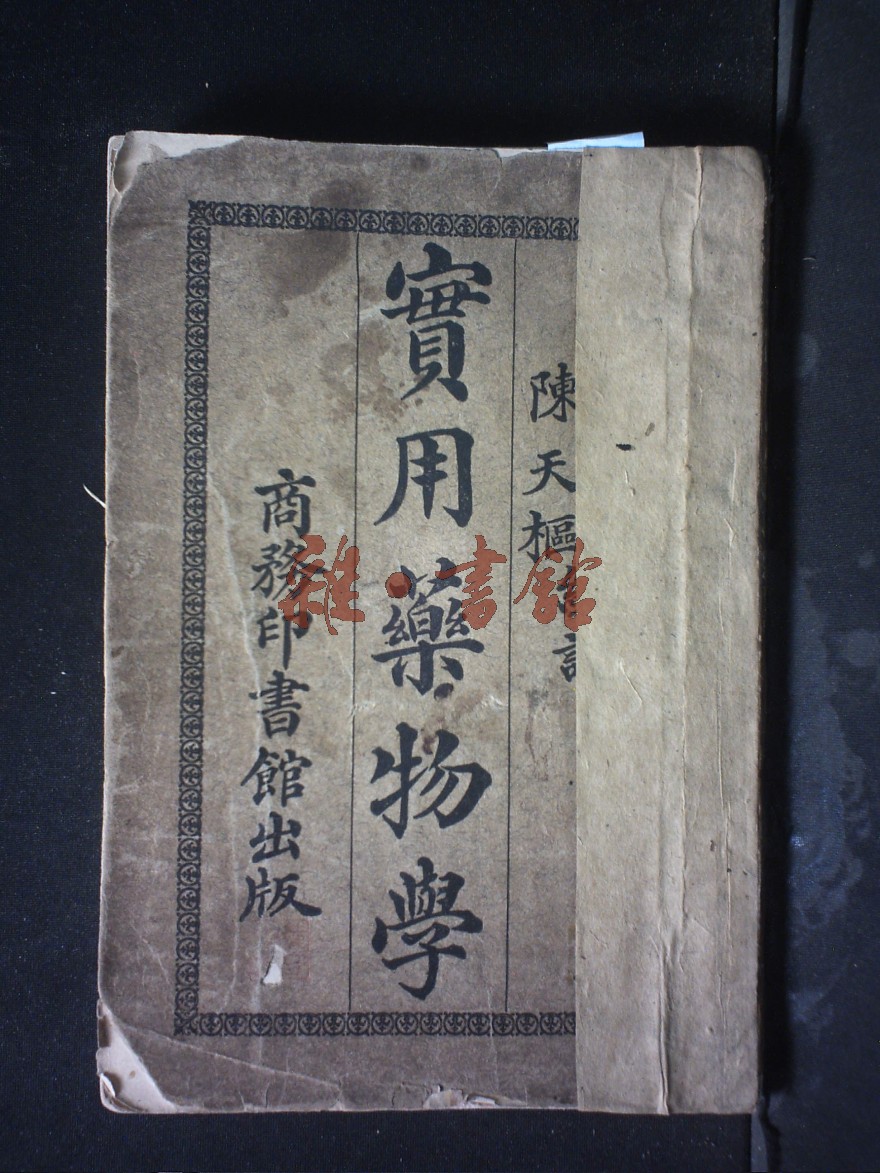 陳天樞
實用藥物學
商務印書館出版
雜·書館